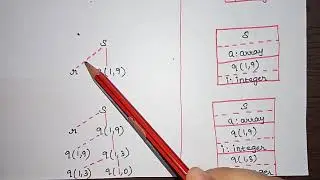 S
r q(1,9)
S
r q(1,9)
q(1,9) q(1,3)
q(1,3) q(1,0)
S
a: array
q(1,9)
i: integer
S
a: array
q(1,9)
q(1,3)
i: integer